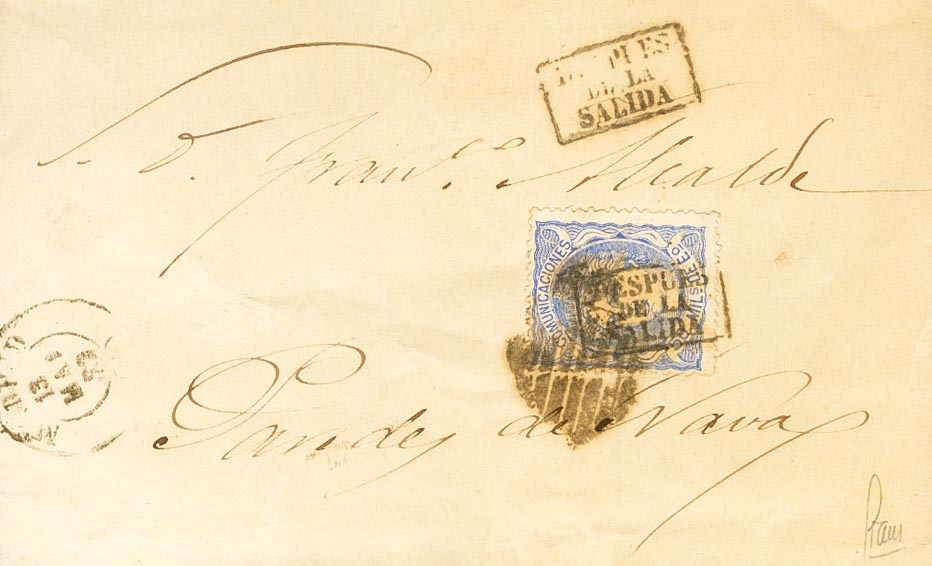 DESPUES
DE LA
SALIDA
S. D. Franco. Alcalde
COMUNICACIONES
MILS DE Eo
DESPUES
DE LA
SALIDA
12
MAR
Paredes de Nava